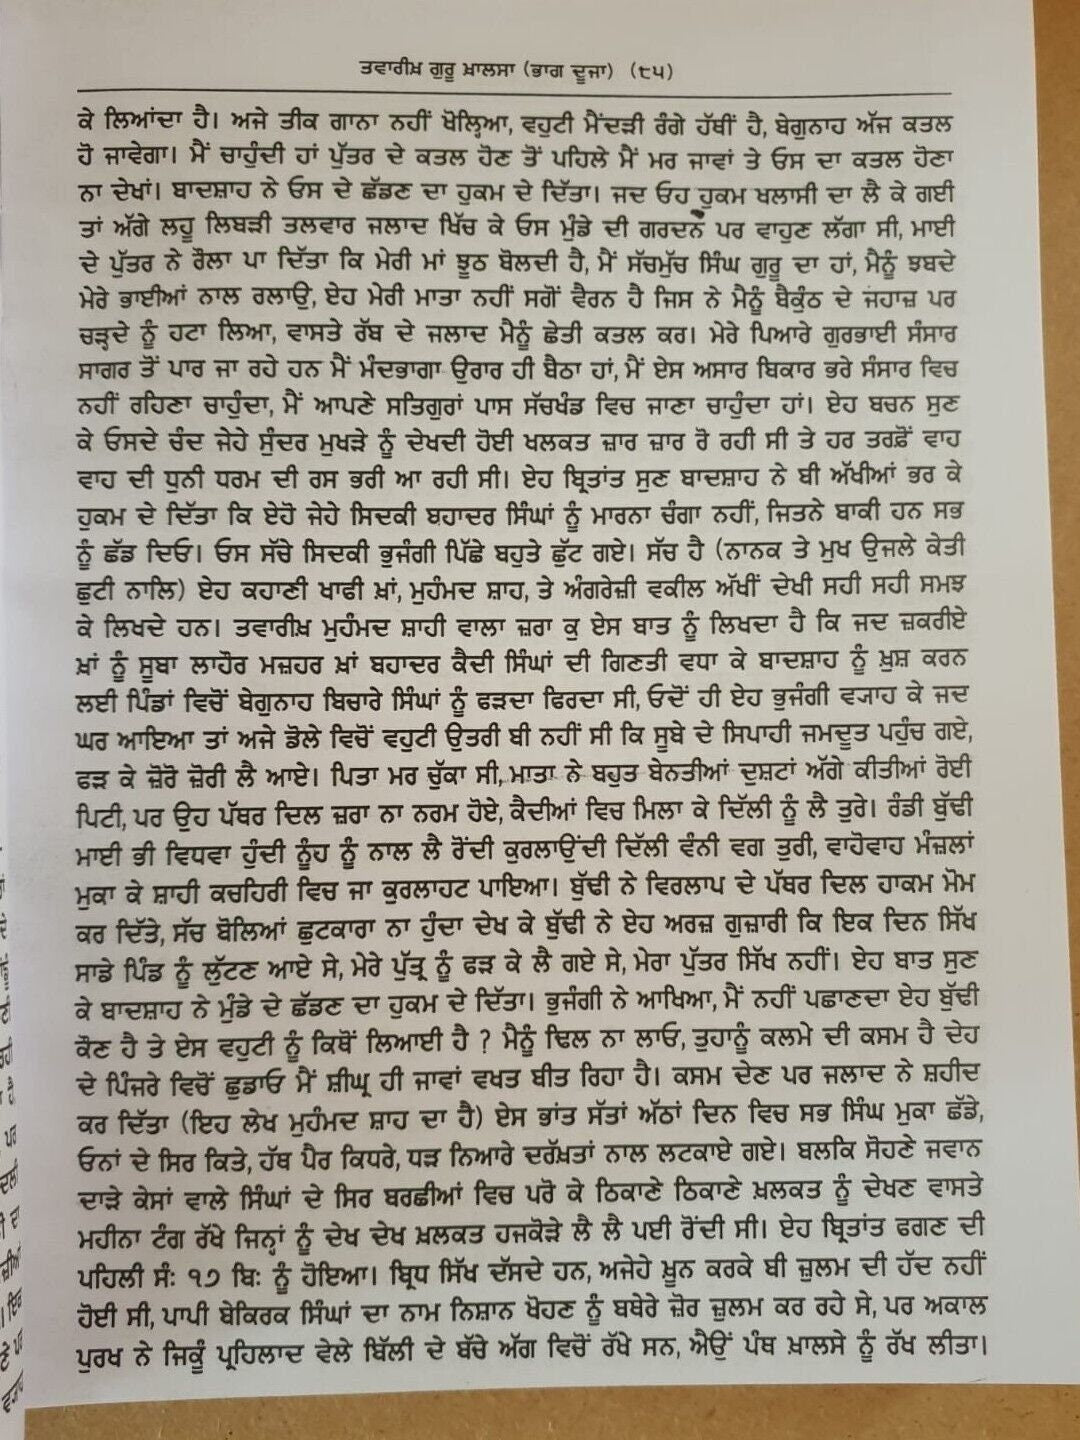 ਤਵਾਰੀਖ਼ ਗੁਰੂ ਖ਼ਾਲਸਾ (ਭਾਗ ਦੂਜਾ) (੮੫)
ਕੇ ਲਿਆਂਦਾ ਹੈ। ਅਜੇ ਤੀਕ ਗਾਨਾ ਨਹੀਂ ਖੋਲ੍ਹਿਆ, ਵਹੁਟੀ ਮੈਂਦੜੀ ਰੰਗੇ ਹੱਥੀਂ ਹੈ, ਬੇਗੁਨਾਹ ਅੱਜ ਕਤਲ
ਹੋ ਜਾਵੇਗਾ। ਮੈਂ ਚਾਹੁੰਦੀ ਹਾਂ ਪੁੱਤਰ ਦੇ ਕਤਲ ਹੋਣ ਤੋਂ ਪਹਿਲੇ ਮੈਂ ਮਰ ਜਾਵਾਂ ਤੇ ਓਸ ਦਾ ਕਤਲ ਹੋਣਾ
ਨਾ ਦੇਖਾਂ। ਬਾਦਸ਼ਾਹ ਨੇ ਓਸ ਦੇ ਛੱਡਣ ਦਾ ਹੁਕਮ ਦੇ ਦਿੱਤਾ। ਜਦ ਓਹ ਹੁਕਮ ਖਲਾਸੀ ਦਾ ਲੈ ਕੇ ਗਈ
ਤਾਂ ਅੱਗੇ ਲਹੂ ਲਿਬੜੀ ਤਲਵਾਰ ਜਲਾਦ ਖਿੱਚ ਕੇ ਓਸ ਮੁੰਡੇ ਦੀ ਗਰਦਨ ਪਰ ਵਾਹੁਣ ਲੱਗਾ ਸੀ, ਮਾਈ
ਦੇ ਪੁੱਤਰ ਨੇ ਰੌਲਾ ਪਾ ਦਿੱਤਾ ਕਿ ਮੇਰੀ ਮਾਂ ਝੂਠ ਬੋਲਦੀ ਹੈ, ਮੈਂ ਸੱਚਮੁੱਚ ਸਿੰਘ ਗੁਰੂ ਦਾ ਹਾਂ, ਮੈਨੂੰ ਝਬਦੇ
ਮੇਰੇ ਭਾਈਆਂ ਨਾਲ ਰਲਾਉ, ਏਹ ਮੇਰੀ ਮਾਤਾ ਨਹੀਂ ਸਗੋਂ ਵੈਰਨ ਹੈ ਜਿਸ ਨੇ ਮੈਨੂੰ ਬੈਕੁੰਠ ਦੇ ਜਹਾਜ਼ ਪਰ
ਚੜ੍ਹਦੇ ਨੂੰ ਹਟਾ ਲਿਆ, ਵਾਸਤੇ ਰੱਬ ਦੇ ਜਲਾਦ ਮੈਨੂੰ ਛੇਤੀ ਕਤਲ ਕਰ। ਮੇਰੇ ਪਿਆਰੇ ਗੁਰਭਾਈ ਸੰਸਾਰ
ਸਾਗਰ ਤੋਂ ਪਾਰ ਜਾ ਰਹੇ ਹਨ ਮੈਂ ਮੰਦਭਾਗਾ ਉਰਾਰ ਹੀ ਬੈਠਾ ਹਾਂ, ਮੈਂ ਏਸ ਅਸਾਰ ਬਿਕਾਰ ਭਰੇ ਸੰਸਾਰ ਵਿਚ
ਨਹੀਂ ਰਹਿਣਾ ਚਾਹੁੰਦਾ, ਮੈਂ ਆਪਣੇ ਸਤਿਗੁਰਾਂ ਪਾਸ ਸੱਚਖੰਡ ਵਿਚ ਜਾਣਾ ਚਾਹੁੰਦਾ ਹਾਂ। ਏਹ ਬਚਨ ਸੁਣ
ਕੇ ਓਸਦੇ ਚੰਦ ਜੇਹੇ ਸੁੰਦਰ ਮੁਖੜੇ ਨੂੰ ਦੇਖਦੀ ਹੋਈ ਖਲਕਤ ਜ਼ਾਰ ਜ਼ਾਰ ਰੋ ਰਹੀ ਸੀ ਤੇ ਹਰ ਤਰਫ਼ੋਂ ਵਾਹ
ਵਾਹ ਦੀ ਧੁਨੀ ਧਰਮ ਦੀ ਰਸ ਭਰੀ ਆ ਰਹੀ ਸੀ। ਏਹ ਬ੍ਰਿਤਾਂਤ ਸੁਣ ਬਾਦਸ਼ਾਹ ਨੇ ਬੀ ਅੱਖੀਆਂ ਭਰ ਕੇ
ਹੁਕਮ ਦੇ ਦਿੱਤਾ ਕਿ ਏਹੋ ਜੇਹੇ ਸਿਦਕੀ ਬਹਾਦਰ ਸਿੰਘਾਂ ਨੂੰ ਮਾਰਨਾ ਚੰਗਾ ਨਹੀਂ, ਜਿਤਨੇ ਬਾਕੀ ਹਨ ਸਭ
ਨੂੰ ਛੱਡ ਦਿਓ। ਓਸ ਸੱਚੇ ਸਿਦਕੀ ਭੁਜੰਗੀ ਪਿੱਛੇ ਬਹੁਤੇ ਛੁੱਟ ਗਏ। ਸੱਚ ਹੈ (ਨਾਨਕ ਤੇ ਮੁਖ ਉਜਲੇ ਕੇਤੀ
ਛੁਟੀ ਨਾਲਿ) ਏਹ ਕਹਾਣੀ ਖਾਫੀ ਖ਼ਾਂ, ਮੁਹੰਮਦ ਸ਼ਾਹ, ਤੇ ਅੰਗਰੇਜ਼ੀ ਵਕੀਲ ਅੱਖੀਂ ਦੇਖੀ ਸਹੀ ਸਹੀ ਸਮਝ
ਕੇ ਲਿਖਦੇ ਹਨ। ਤਵਾਰੀਖ਼ ਮੁਹੰਮਦ ਸ਼ਾਹੀ ਵਾਲਾ ਜ਼ਰਾ ਕੁ ਏਸ ਬਾਤ ਨੂੰ ਲਿਖਦਾ ਹੈ ਕਿ ਜਦ ਜ਼ਕਰੀਏ
ਖ਼ਾਂ ਨੂੰ ਸੂਬਾ ਲਾਹੌਰ ਮਜ਼ਹਰ ਖ਼ਾਂ ਬਹਾਦਰ ਕੈਦੀ ਸਿੰਘਾਂ ਦੀ ਗਿਣਤੀ ਵਧਾ ਕੇ ਬਾਦਸ਼ਾਹ ਨੂੰ ਖ਼ੁਸ਼ ਕਰਨ
ਲਈ ਪਿੰਡਾਂ ਵਿਚੋਂ ਬੇਗੁਨਾਹ ਬਿਚਾਰੇ ਸਿੰਘਾਂ ਨੂੰ ਫੜਦਾ ਫਿਰਦਾ ਸੀ, ਓਦੋਂ ਹੀ ਏਹ ਭੁਜੰਗੀ ਵ੍ਯਾਹ ਕੇ ਜਦ
ਘਰ ਆਇਆ ਤਾਂ ਅਜੇ ਡੋਲੇ ਵਿਚੋਂ ਵਹੁਟੀ ਉਤਰੀ ਬੀ ਨਹੀਂ ਸੀ ਕਿ ਸੂਬੇ ਦੇ ਸਿਪਾਹੀ ਜਮਦੂਤ ਪਹੁੰਚ ਗਏ,
ਫੜ ਕੇ ਜ਼ੋਰੋ ਜ਼ੋਰੀ ਲੈ ਆਏ। ਪਿਤਾ ਮਰ ਚੁੱਕਾ ਸੀ, ਮਾਤਾ ਨੇ ਬਹੁਤ ਬੇਨਤੀਆਂ ਦੁਸ਼ਟਾਂ ਅੱਗੇ ਕੀਤੀਆਂ ਰੋਈ
ਪਿਟੀ, ਪਰ ਉਹ ਪੱਥਰ ਦਿਲ ਜ਼ਰਾ ਨਾ ਨਰਮ ਹੋਏ, ਕੈਦੀਆਂ ਵਿਚ ਮਿਲਾ ਕੇ ਦਿੱਲੀ ਨੂੰ ਲੈ ਤੁਰੇ। ਰੰਡੀ ਬੁੱਢੀ
ਮਾਈ ਭੀ ਵਿਧਵਾ ਹੁੰਦੀ ਨੂੰਹ ਨੂੰ ਨਾਲ ਲੈ ਰੋਂਦੀ ਕੁਰਲਾਉਂਦੀ ਦਿੱਲੀ ਵੰਨੀ ਵਗ ਤੁਰੀ, ਵਾਹੋਵਾਹ ਮੰਜ਼ਲਾਂ
ਮੁਕਾ ਕੇ ਸ਼ਾਹੀ ਕਚਹਿਰੀ ਵਿਚ ਜਾ ਕੁਰਲਾਹਟ ਪਾਇਆ। ਬੁੱਢੀ ਨੇ ਵਿਰਲਾਪ ਦੇ ਪੱਥਰ ਦਿਲ ਹਾਕਮ ਮੋਮ
ਕਰ ਦਿੱਤੇ, ਸੱਚ ਬੋਲਿਆਂ ਛੁਟਕਾਰਾ ਨਾ ਹੁੰਦਾ ਦੇਖ ਕੇ ਬੁੱਢੀ ਨੇ ਏਹ ਅਰਜ਼ ਗੁਜ਼ਾਰੀ ਕਿ ਇਕ ਦਿਨ ਸਿੱਖ
ਸਾਡੇ ਪਿੰਡ ਨੂੰ ਲੁੱਟਣ ਆਏ ਸੇ, ਮੇਰੇ ਪੁੱਤ੍ਰ ਨੂੰ ਫੜ ਕੇ ਲੈ ਗਏ ਸੇ, ਮੇਰਾ ਪੁੱਤਰ ਸਿੱਖ ਨਹੀਂ। ਏਹ ਬਾਤ ਸੁਣ
ਕੇ ਬਾਦਸ਼ਾਹ ਨੇ ਮੁੰਡੇ ਦੇ ਛੱਡਣ ਦਾ ਹੁਕਮ ਦੇ ਦਿੱਤਾ। ਭੁਜੰਗੀ ਨੇ ਆਖਿਆ, ਮੈਂ ਨਹੀਂ ਪਛਾਣਦਾ ਏਹ ਬੁੱਢੀ
ਕੌਣ ਹੈ ਤੇ ਏਸ ਵਹੁਟੀ ਨੂੰ ਕਿਥੋਂ ਲਿਆਈ ਹੈ ? ਮੈਨੂੰ ਢਿਲ ਨਾ ਲਾਓ, ਤੁਹਾਨੂੰ ਕਲਮੇ ਦੀ ਕਸਮ ਹੈ ਦੇਹ
ਦੇ ਪਿੰਜਰੇ ਵਿਚੋਂ ਛੁਡਾਓ ਮੈਂ ਸ਼ੀਘ੍ਰ ਹੀ ਜਾਵਾਂ ਵਖਤ ਬੀਤ ਰਿਹਾ ਹੈ। ਕਸਮ ਦੇਣ ਪਰ ਜਲਾਦ ਨੇ ਸ਼ਹੀਦ
ਕਰ ਦਿੱਤਾ (ਇਹ ਲੇਖ ਮੁਹੰਮਦ ਸ਼ਾਹ ਦਾ ਹੈ) ਏਸ ਭਾਂਤ ਸੱਤਾਂ ਅੱਠਾਂ ਦਿਨ ਵਿਚ ਸਭ ਸਿੰਘ ਮੁਕਾ ਛੱਡੇ,
ਓਨਾਂ ਦੇ ਸਿਰ ਕਿਤੇ, ਹੱਥ ਪੈਰ ਕਿਧਰੇ, ਧੜ ਨਿਆਰੇ ਦਰਖ਼ਤਾਂ ਨਾਲ ਲਟਕਾਏ ਗਏ। ਬਲਕਿ ਸੋਹਣੇ ਜਵਾਨ
ਦਾੜੇ ਕੇਸਾਂ ਵਾਲੇ ਸਿੰਘਾਂ ਦੇ ਸਿਰ ਬਰਛੀਆਂ ਵਿਚ ਪਰੋ ਕੇ ਠਿਕਾਣੇ ਠਿਕਾਣੇ ਖ਼ਲਕਤ ਨੂੰ ਦੇਖਣ ਵਾਸਤੇ
ਮਹੀਨਾ ਟੰਗ ਰੱਖੇ ਜਿਨ੍ਹਾਂ ਨੂੰ ਦੇਖ ਦੇਖ ਖ਼ਲਕਤ ਹਜਕੋੜੇ ਲੈ ਲੈ ਪਈ ਰੋਂਦੀ ਸੀ। ਏਹ ਬ੍ਰਿਤਾਂਤ ਫਗਣ ਦੀ
ਪਹਿਲੀ ਸੰਃ ੧੭ ਬਿਃ ਨੂੰ ਹੋਇਆ। ਬ੍ਰਿਧ ਸਿੱਖ ਦੱਸਦੇ ਹਨ, ਅਜੇਹੇ ਖ਼ੂਨ ਕਰਕੇ ਬੀ ਜ਼ੁਲਮ ਦੀ ਹੱਦ ਨਹੀਂ
ਹੋਈ ਸੀ, ਪਾਪੀ ਬੇਕਿਰਕ ਸਿੰਘਾਂ ਦਾ ਨਾਮ ਨਿਸ਼ਾਨ ਖੋਹਣ ਨੂੰ ਬਥੇਰੇ ਜ਼ੋਰ ਜ਼ੁਲਮ ਕਰ ਰਹੇ ਸੇ, ਪਰ ਅਕਾਲ
ਪੁਰਖ ਨੇ ਜਿਕੂੰ ਪ੍ਰਹਿਲਾਦ ਵੇਲੇ ਬਿੱਲੀ ਦੇ ਬੱਚੇ ਅੱਗ ਵਿਚੋਂ ਰੱਖੇ ਸਨ, ਐਉਂ ਪੰਥ ਖ਼ਾਲਸੇ ਨੂੰ ਰੱਖ ਲੀਤਾ।